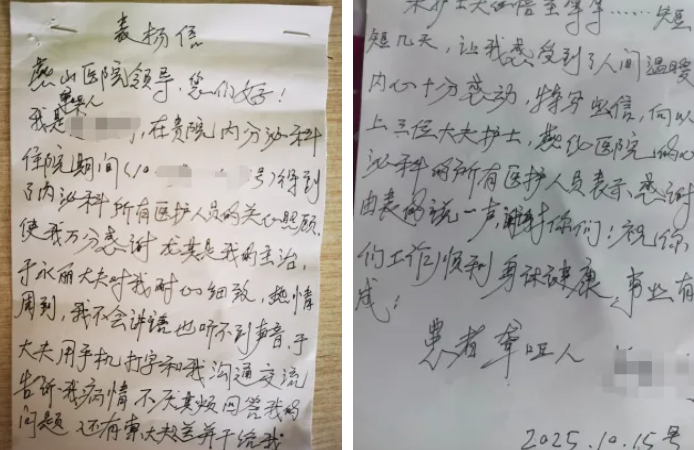 表扬信
燕山医院领导，您们好！
患人
我是，在贵院内分泌科
住院期间(10 号)得到
了内泌科所有医护人员的关心照顾，
使我万分感谢 尤其是我的主治，
于永丽大夫对我耐心细致，热情
周到，我不会讲话也听不到声音，于
大夫用手机打字和我沟通交流
告诉我病情不厌其烦回答我的
问题 还有 大夫 给我
护士关怀备至等等……短
短几天，让我感受到了人间温暖
内心十分感动，特写此信，向以
上三位大夫护士，燕化医院内
泌科的所有医护人员表示感谢
由衷的说一声，谢谢你们！祝你
们工作顺利 身体健康，事业有
成！
患者聋哑人
2025.10.15号